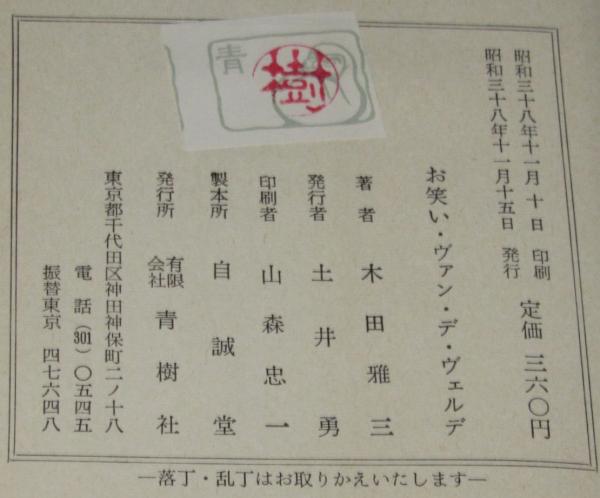 昭和三十八年十一月 十 日 印刷
昭和三十八年十一月十五日 発行
定価 三六〇円
お笑い・ヴァン・デ・ヴェルデ
著者 木田雅三
発行者 土井勇
印刷者 山森忠一
製本所 自誠堂
発行所 有限会社 青樹社
東京都千代田区神田神保町二ノ十八
電話(301)〇五四五
振替東京 四七六四八
青
樹
―落丁・乱丁はお取りかえいたします―